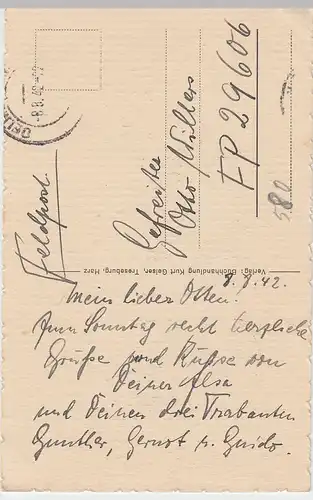 8.8.42
Feldpost.
Gefreiter
Otto Willers
FP 29606
580
Verlag: Buchhandlung Kurt Gelsen, Treseburg, Harz
8.8.42.
Mein lieber Otten!
Zum Sonntag recht herzliche
Grüße und Küsse von
Deiner Ilsa
und Deinen drei Trabanten
Gunther, Gernot u. Guido.